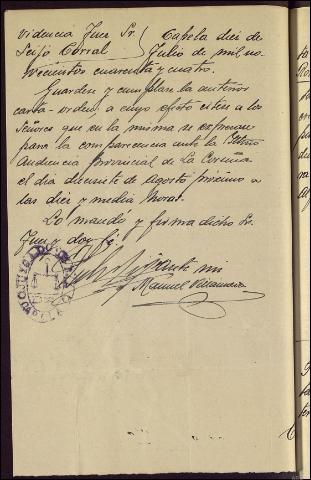 videncia Juez Sr. Capela diez de
Seijo Corral Julio de mil no
vecientos cuarenta y cuatro.
Guardese y cumplase la anterior
carta-orden, a cuyo efecto citese a los
Señores que en la misma se expresan
para la comparecencia ante la
Audiencia Provincial de La Coruña
el dia diecisiete de Agosto próximo a
las diez y media horas.
Lo mandó y firma dicho Sr.
Juez y doy fé.
Ante mi
Manuel